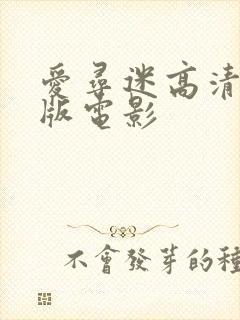 愛尋迷高清
版電影
不會發芽的種